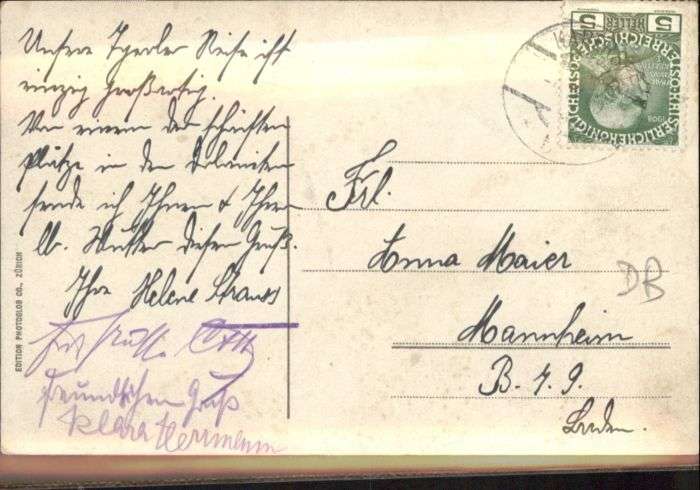 Unsere Tyroler Reise ist
einzig großartig.
Von einem der schönsten
Plätze in den Dolomiten
sende ich Ihnen & Ihrer
lb. Mutter diesen Gruß.
Ihre Helene Strauss
freundlichen Gruß
Klara Herrmann
EDITION PHOTOGLOB CO., ZÜRICH
5 HELLER 5
KAISERLICHE KÖNIGLICHE ÖSTERREICHISCHE POST
1908
Frl.
Anna Maier
Mannheim
B. 7. 9.
Baden.
DB